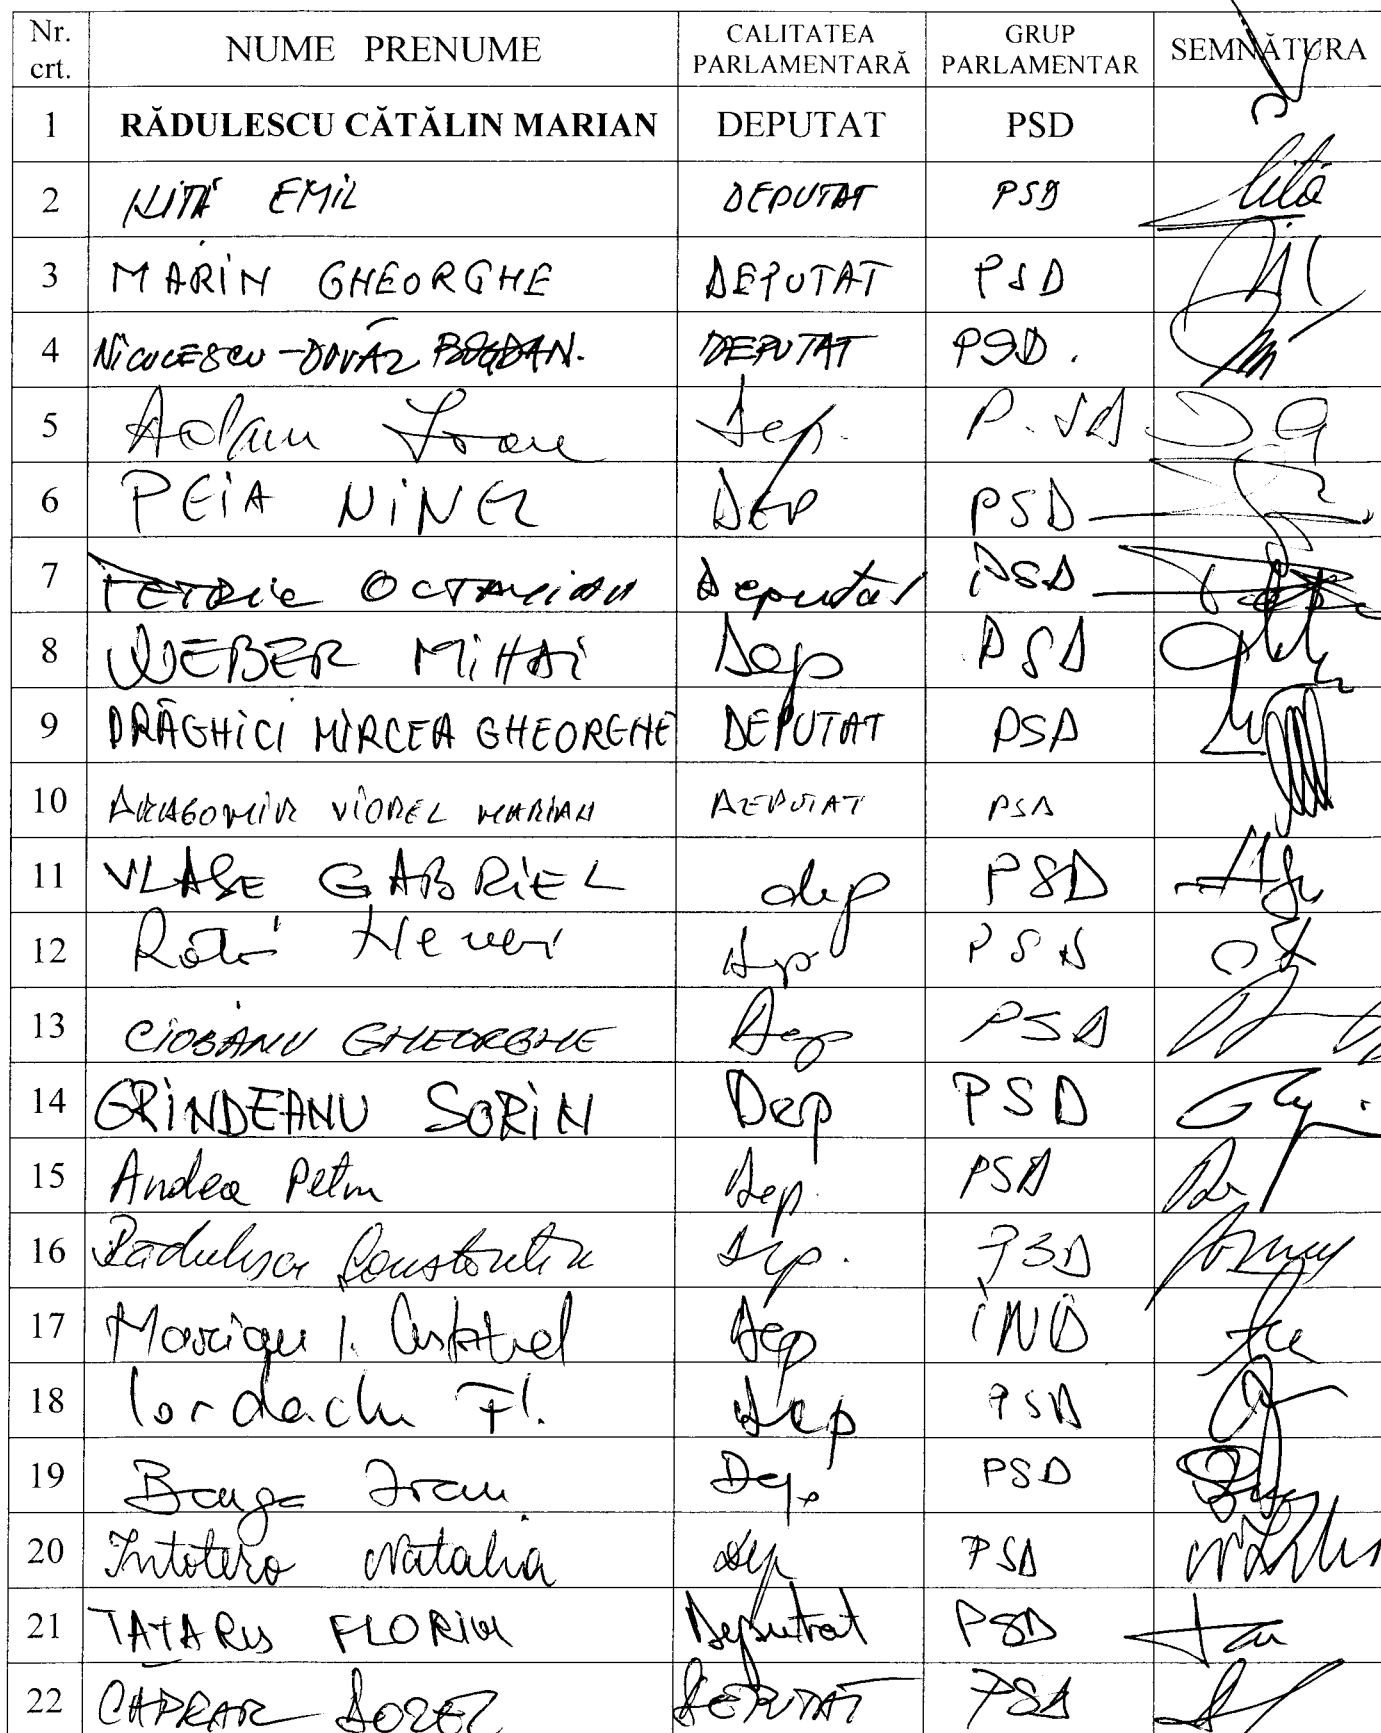 Nr. crt. NUME PRENUME CALITATEA PARLAMENTARĂ GRUP PARLAMENTAR SEMNĂTURA
1 RĂDULESCU CĂTĂLIN MARIAN DEPUTAT PSD
2 NIȚĂ EMIL DEPUTAT PSD Niță
3 MARIN GHEORGHE DEPUTAT PSD
4 NICULESCU-DUVĂZ BOGDAN. DEPUTAT PSD.
5 Adam Ioan Dep. P.SD
6 PEIA NINEL DEP PSD
7 PETRIC OCTAVIAN Deputat PSD
8 WEBER MIHAI Dep PSD
9 DRĂGHICI MIRCEA GHEORGHE DEPUTAT PSD
10 DRAGOMIR VIOREL MARIAN DEPUTAT PSD
11 VLASE GABRIEL dep PSD
12 Dep PSD
13 CIOBANU GHEORGHE Dep PSD
14 GRINDEANU SORIN Dep PSD
15 Andea Petru Dep. PSD
16 Rădulescu Constantin Dep. PSD
17 Dep IND
18 Iordache Fl. Dep PSD
19 Banga Ioan Dep. PSD
20 Intotero Natalia Dep PSD
21 TĂTARU FLORIN Deputat PSD
22 CĂPRAR DOREL DEPUTAT PSD